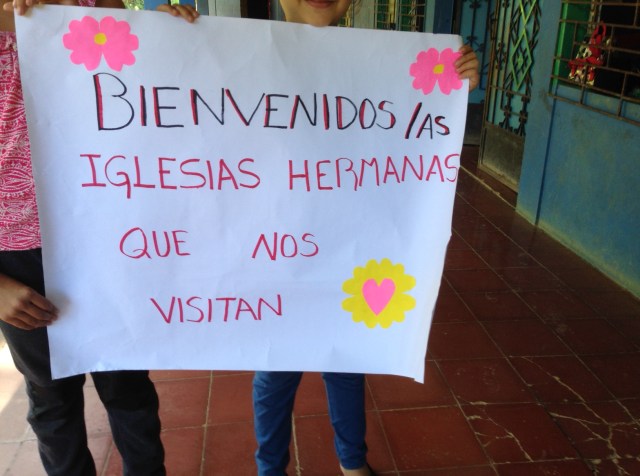 BIENVENIDOS/AS
IGLESIAS HERMANAS
QUE NOS
VISITAN